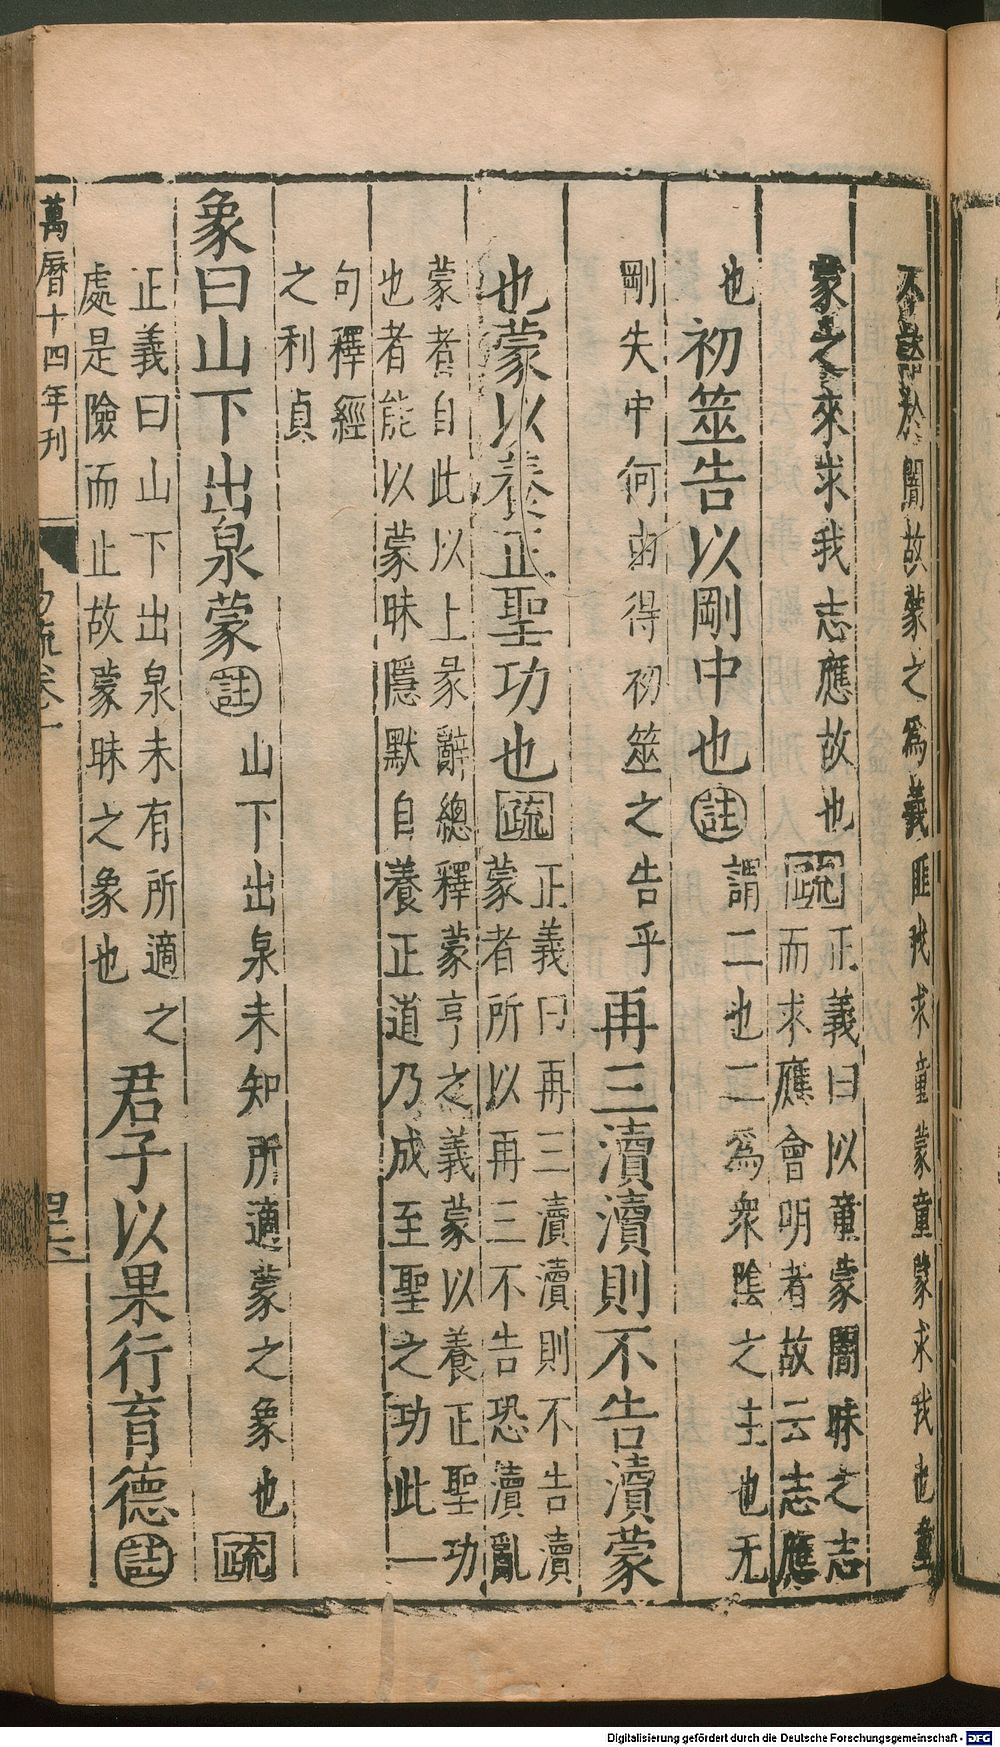 不諮於闇故蒙之爲義匪我求童蒙童蒙求我也童
蒙之來求我志應故也疏正義曰以童蒙闇昧之志
而求應會明者故云志應
也初筮告以剛中也註謂二也二爲衆陰之主也无
剛失中何由得初筮之告乎再三瀆瀆則不告瀆蒙
也蒙以養正聖功也疏正義曰再三瀆瀆則不告瀆
蒙者所以再三不告恐瀆亂
蒙者自此以上彖辭總釋蒙亨之義蒙以養正聖功
也者能以蒙昧隱默自養正道乃成至聖之功此一
句釋經
之利貞
象曰山下出泉蒙註山下出泉未知所適蒙之象也疏
正義曰山下出泉未有所適之
處是險而止故蒙昧之象也君子以果行育德註
萬曆十四年刊
易疏卷一
Digitalisierung gefördert durch die Deutsche Forschungsgemeinschaft - DFG